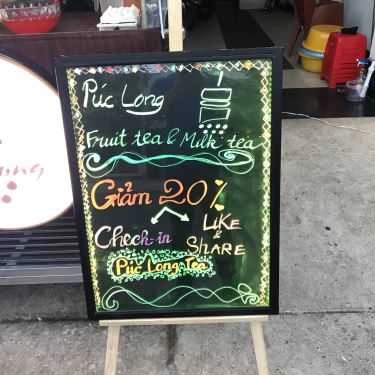 Púc Long
Fruit tea & Milk tea
Giảm 20%
Check-in
LIKE
&
SHARE
Púc Long Tea